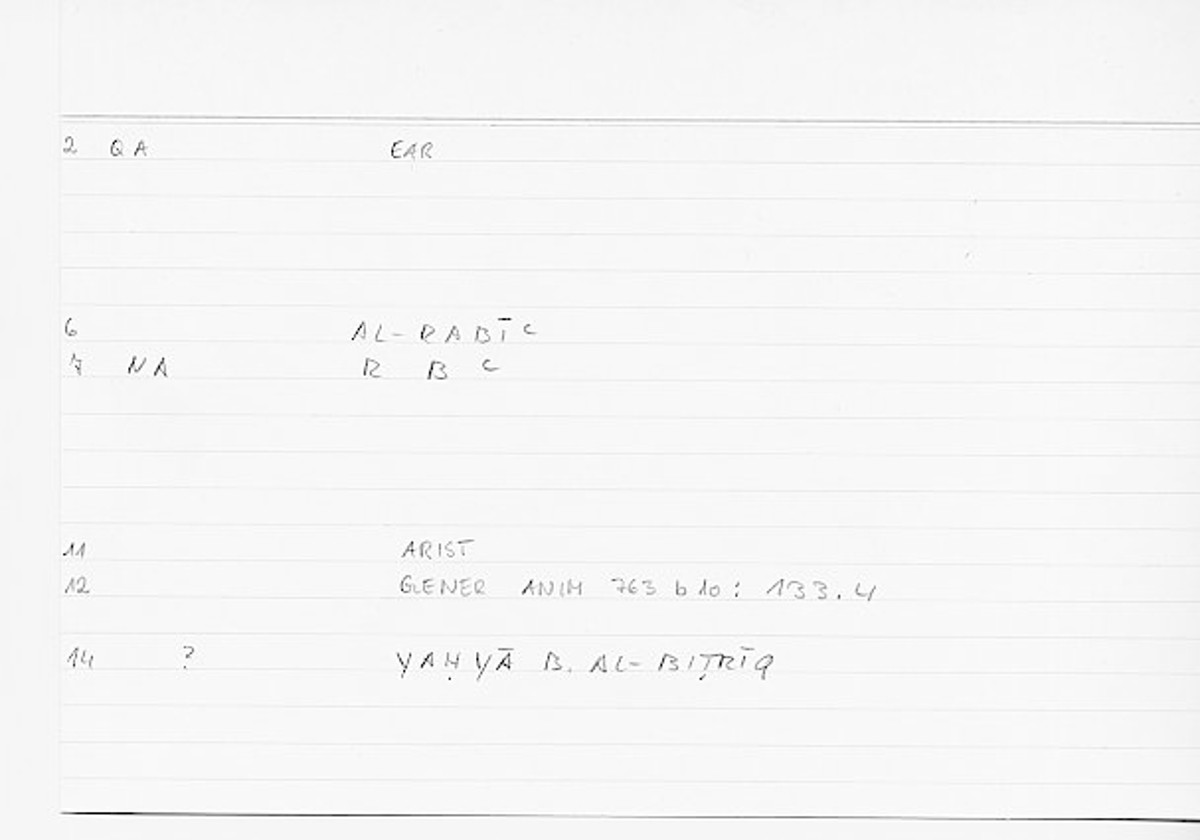 2 QA EAR
6 AL-RABĪʿ
7 NA R B ʿ
11 ARIST
12 GENER ANIM 763 b 10 : 133.4
14 ? YAḤYĀ B. AL-BIṬRĪQ